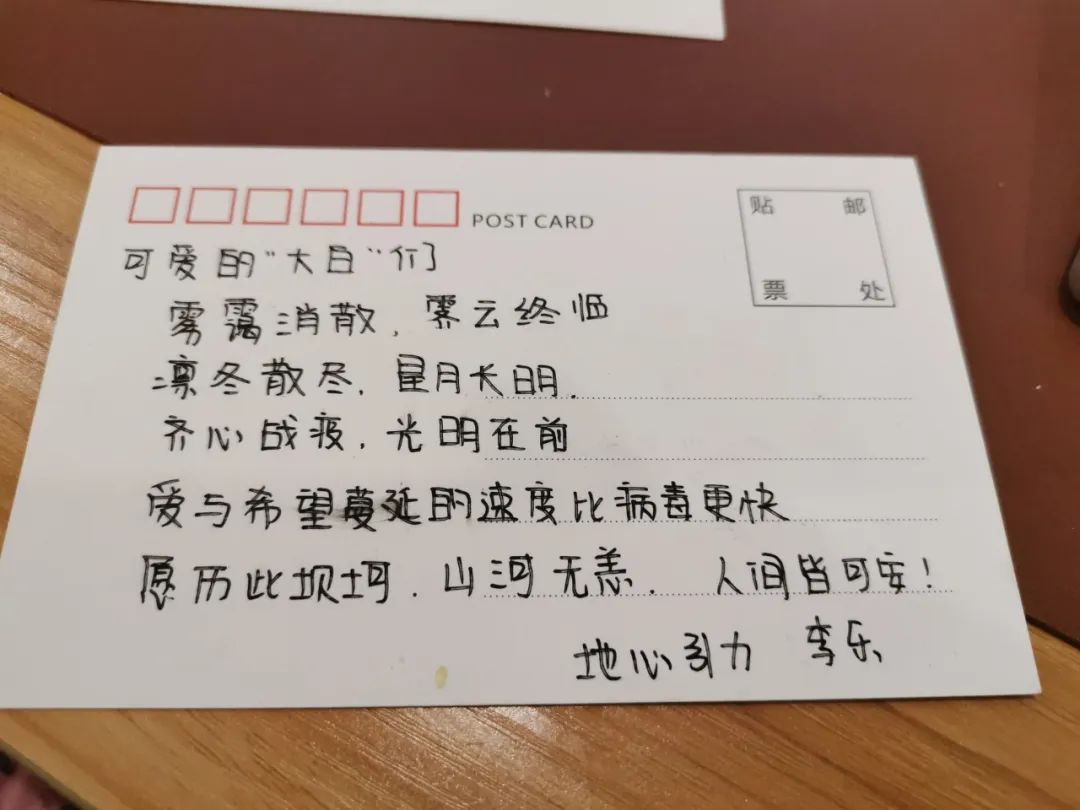 POST CARD
贴 邮
票 处
可爱的“大白”们
雾霭消散,霁云终临
凛冬散尽,星月长明.
齐心战疫,光明在前
爱与希望蔓延的速度比病毒更快
愿历此坝坷.山河无恙.人间皆可安!
地心引力 李乐